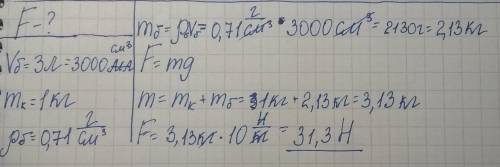 F - ?
Vб = 3л = 3000 см³
mк = 1 кг
ρб = 0,71 г/см³
mб = ρVб = 0,71 г/см³ · 3000 см³ = 2130г = 2,13 кг
F = mg
m = mк + mб = 1 кг + 2,13 кг = 3,13 кг
F = 3,13 кг · 10 Н/кг = 31,3 Н